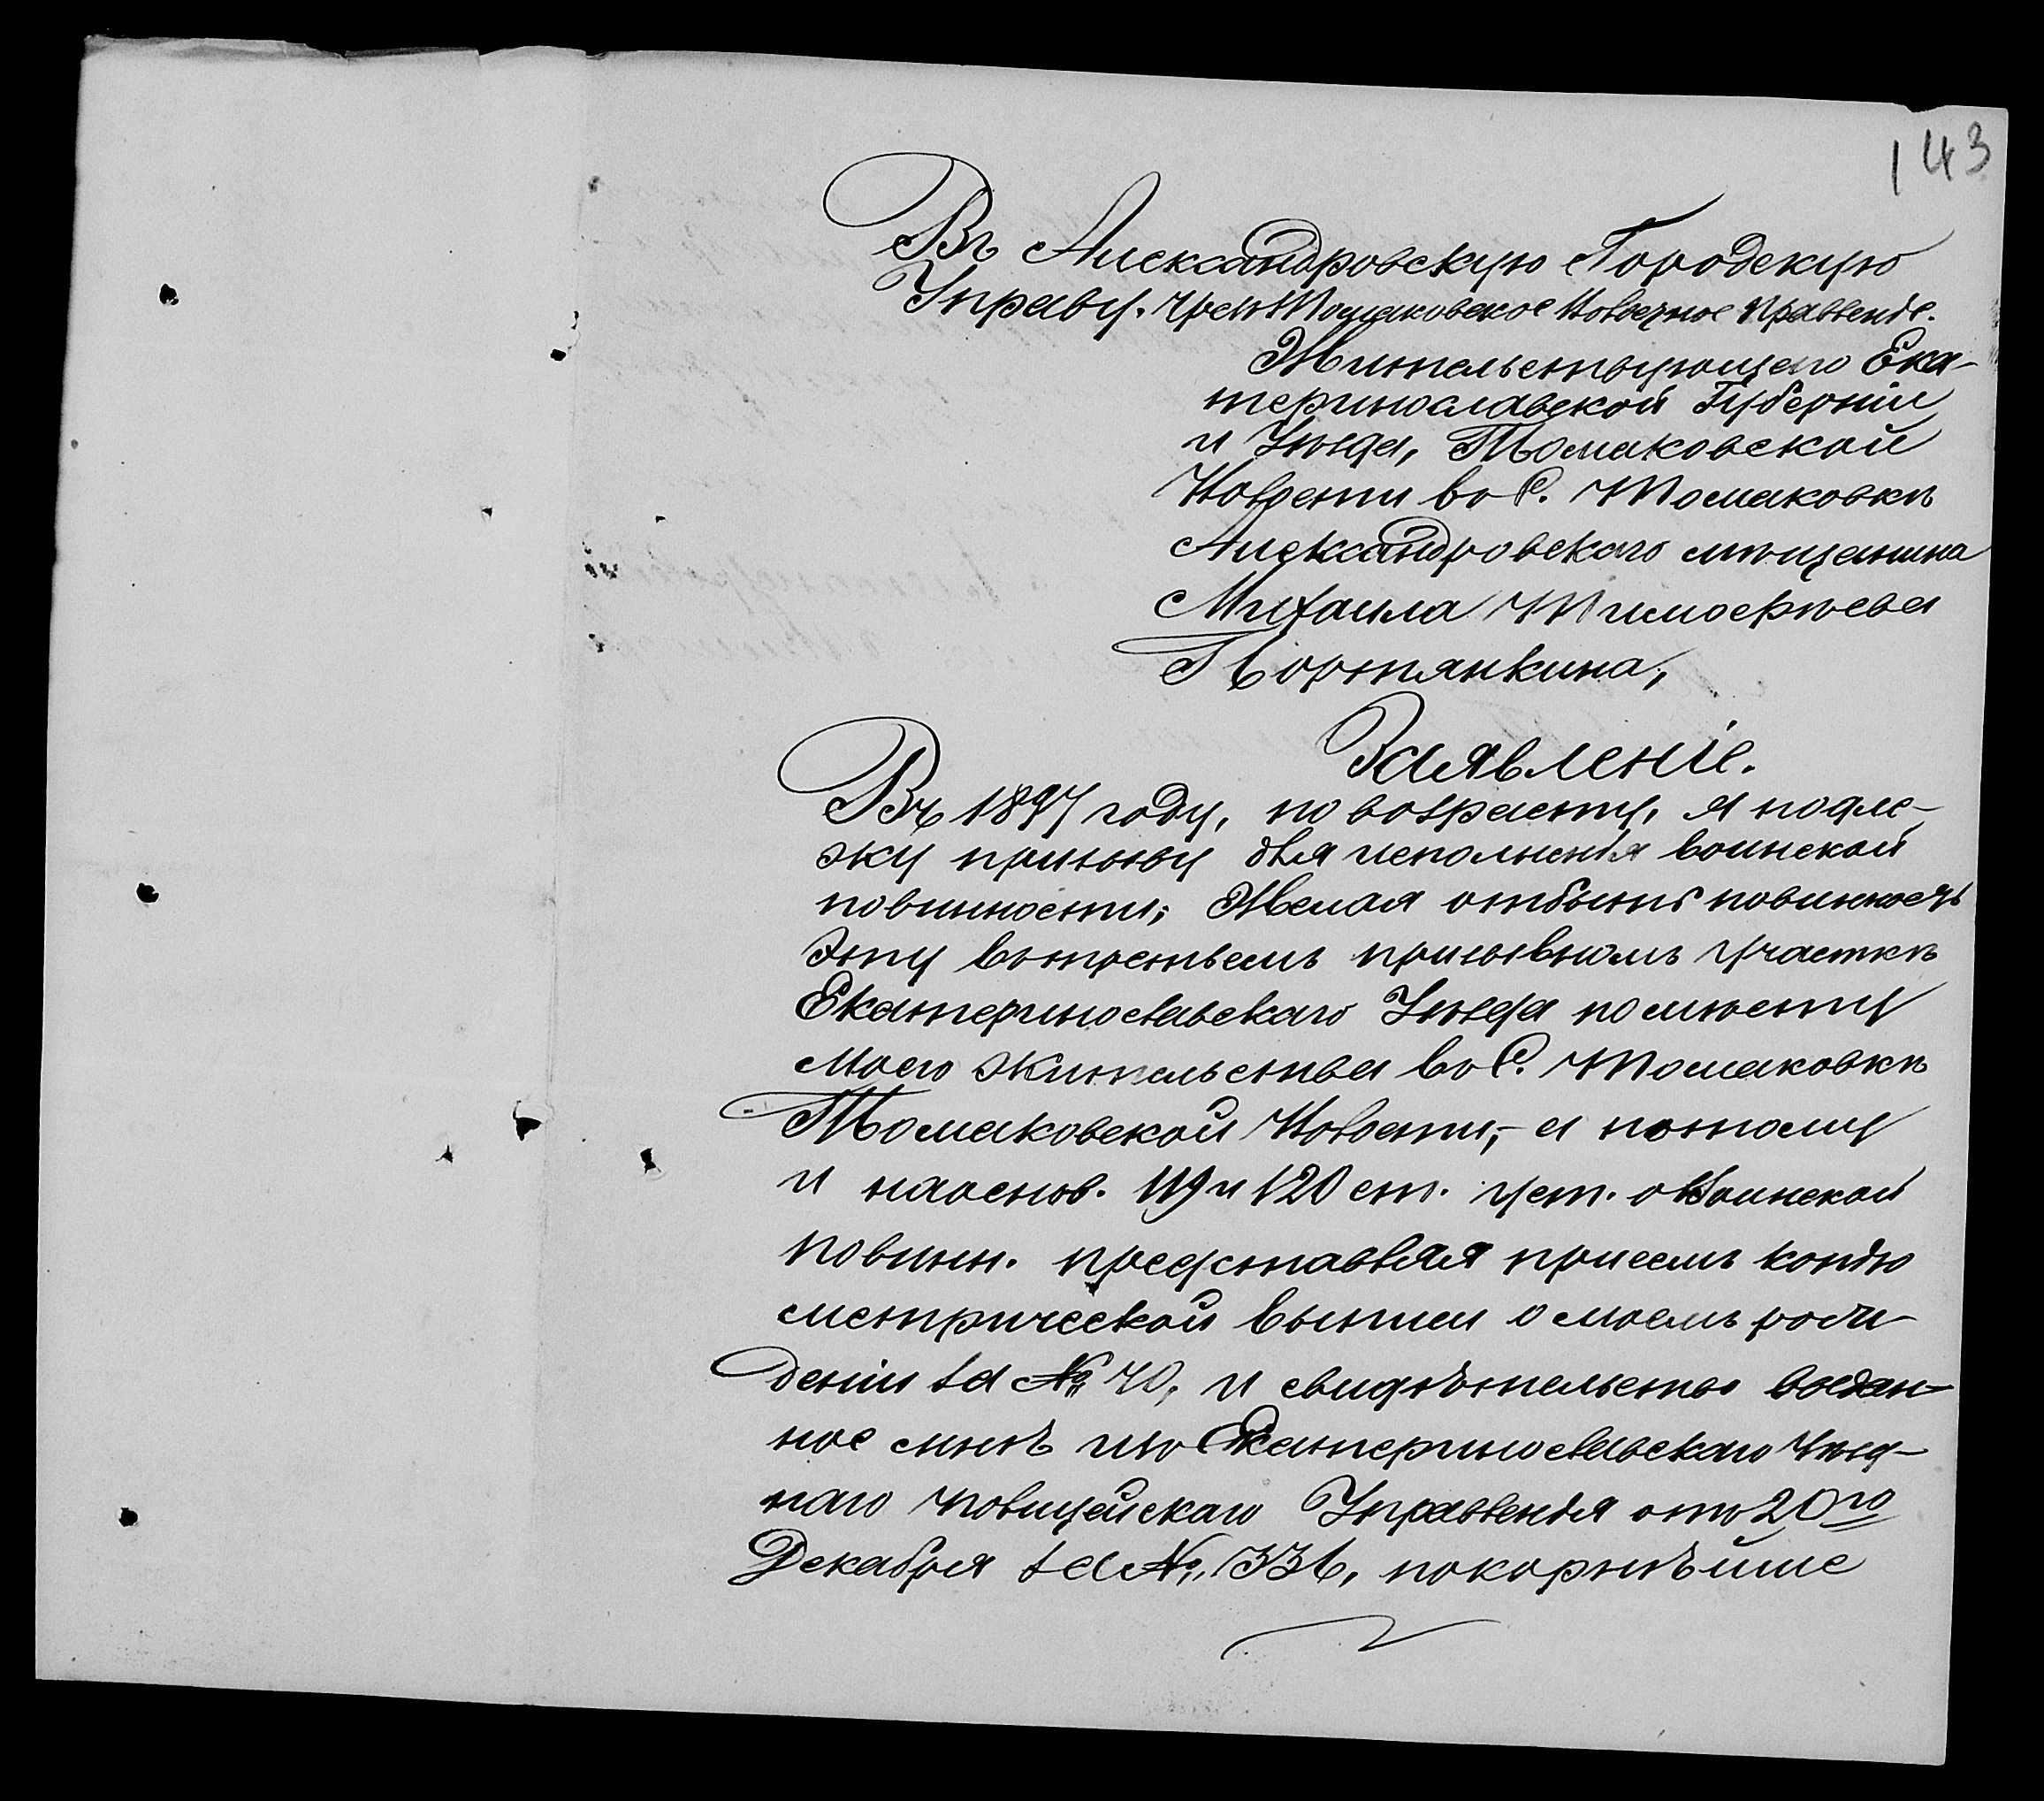 143
Въ Александровскую Городскую
Управу. чрезъ Томаковское Волостное Правленіе.
Жительствующаго Ека-
теринославской Губерніи
и Уѣзда, Томаковской
Волости въ С. Томаковкѣ
Александровскаго мѣщанина
Михаила Тимофѣева
Портянкина,
Заявленіе.
Въ 1897 году, по возрасту, я подле-
жу призыву для исполненія воинской
повинности; Желая отбыть повинность
эту въ третьемъ призывномъ участкѣ
Екатеринославскаго Уѣзда по мѣсту
моего жительства въ С. Томаковкѣ
Томаковской Волости, а потому
и на основ. 119 и 120 ст. уст. о Воинской
повинн. представляя при семъ копію
метрической выписи о моемъ рож-
деніи за № 70, и свидѣтельство выдан-
ное мнѣ изъ Екатеринославскаго Уѣзд-
наго Полицейскаго Управленія отъ 20го
Декабря за № 1336, покорнѣйше